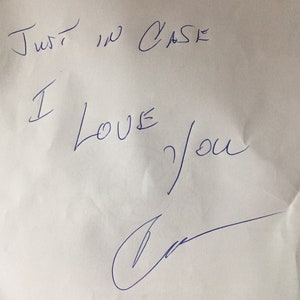 Just in Case
I
Love
You